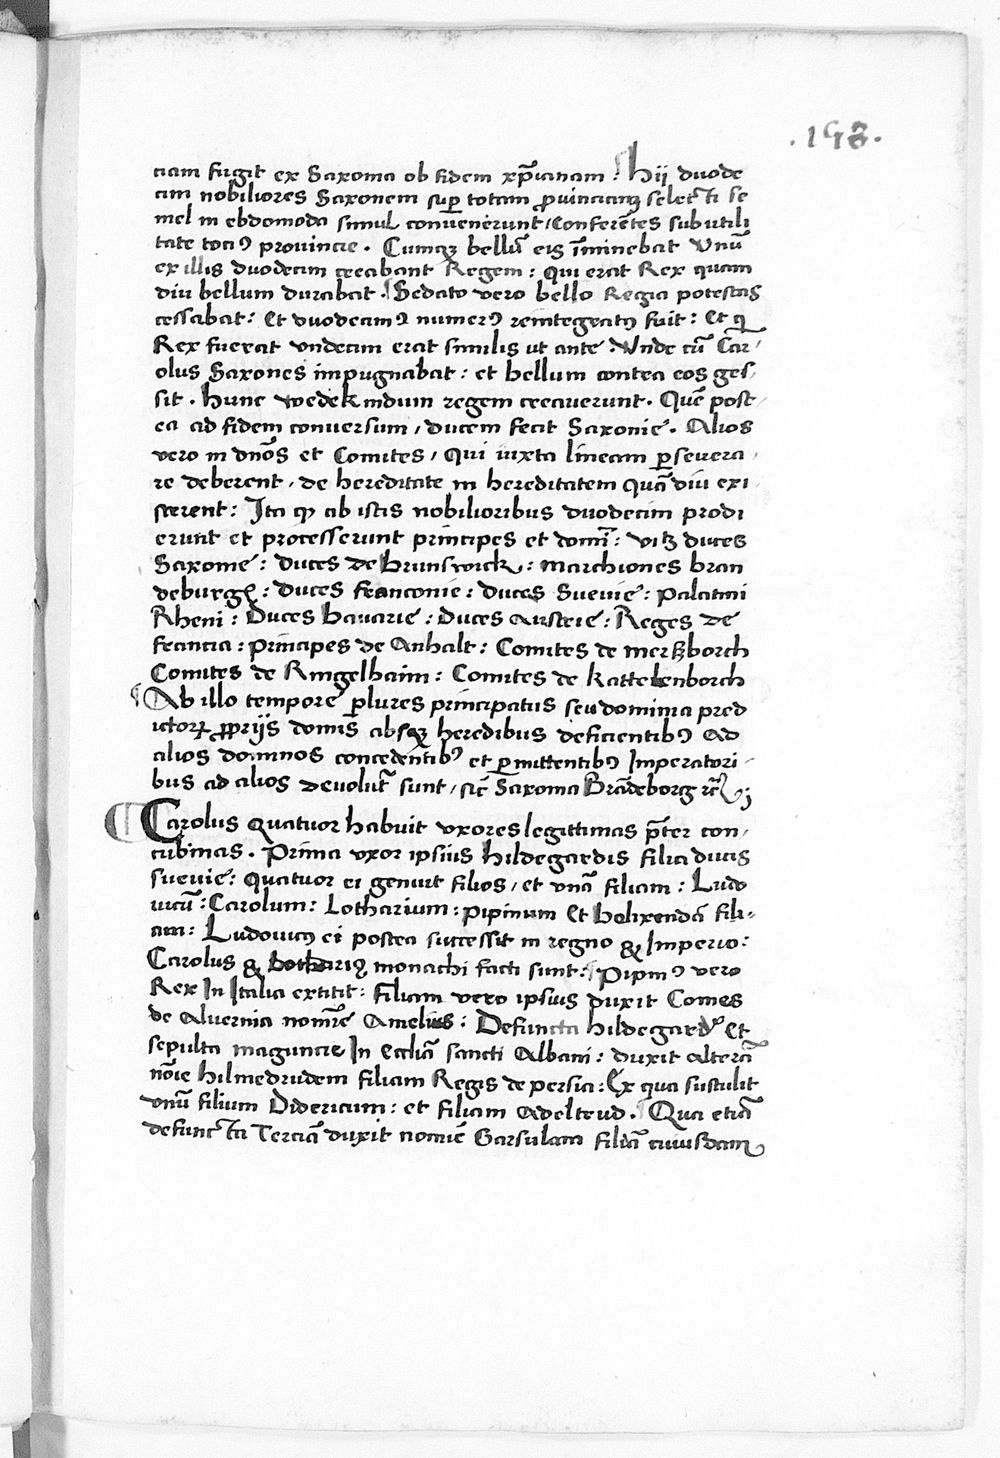 .158.
ciam fugit ex Saxonia ob fidem xp̄ianam. Hii duode
cim nobiliores Saxonem sup̄ totam ꝓuinciam selecti se
mel in ebdomoda simul convenerunt / Conferētes sub utili
tate totiꝰ prouincie. Cumqꝫ bellū eis īminebat Vnū
ex illis duodecim creabant Regem: Qui erat Rex quam
diu bellum durabat. Sedato vero bello Regia potestas
cessabat: Et duodecimꝰ numerꝰ reintegratꝰ fuit: Et qͥ
Rex fuerat vndecim erat similis ut ante. Vnde cū Car-
olus Saxones impugnabat: et bellum contra eos ges-
sit. Hunc wedekindum regem creaverunt. Quē post-
ea ad fidem conuersum, ducem fecit Saxonie. Alios
vero in dnōs et Comites, Qui iuxta lineam ꝑseuera-
re deberent, de hereditate in hereditatem quā diu exi-
sterent: Ita qꝫ ab istis nobilioribus duodecim prodi
erunt et processerunt principes et domī: vitꝫ duces
Saxonie: duces de Brunswick: marchiones bran
deburgē: duces franconie: duces Suevie: palatini
Rheni: Duces bauarie: Duces austrie: Reges de
francia: principes de Anhalt: Comites de merszborch
Comites de Ringelhaim: Comites de kattelenborch
Ab illo tempore plures principatus seu dominia pred
ictorꝝ ꝓprijs domīs absqꝫ heredibus deficientibꝰ ad
alios dominos concedentibꝰ et ꝑmittentibꝰ Imperatori-
bus ad alios devolut̄ sunt, sic̄ Saxonia Brādeborg rc̄;
Carolus Quatuor habuit vxores legittimas p̄ter con-
cubinas. Prima vxor ipsius hildegardis filia ducis
suevie: Quatuor ei genuit filios, et vnā filiam: Ludo
vicū: Carolum: Lotharium: pipinum Et helixendā fili-
am: Ludouicꝰ ei postea successit in regno & Imperio:
Carolus & Lothariꝰ monachi facti sunt: Pipinꝰ vero
Rex In Italia extitit: filiam vero ipsius duxit Comes
de Aluernia nomīe Amelius: Defuncta hildegardͣ Et
sepulta maguncie In Ecclīa sancti Albani: duxit alterā
nōīe hilmedrudem filiam Regis de persia: Ex qua sustulit
vnū filium Didericum: et filiam adeltrud. Qua etiā
defuncta Terciā duxit nomīe Garsulam filiā cuiusdam